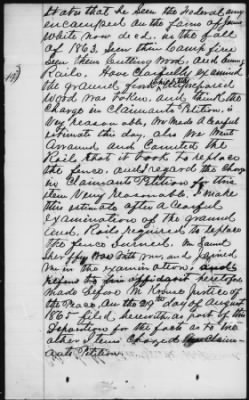 States that he seen the Federal army
encamped on the farm of James
White now decd. in the fall
of 1863. Seen their Camp fires
Seen them Cutting wood, and burning
Rails. Have Carefully examined
the ground from which
wood was taken, and think the
Charge in Claimants Petition is
Very reasonable, We Made a Careful
estimate this day. also We Went
Around and Counted the
Rails that it took to replace
the fence, and regard the Charge
in Claimants Petition for this
item Very Reasonable. I Make
this estimate after a Careful
examination of the ground
And, Rails required to replace
the fence burned.
was with me, and joined
Me in the examination; and
refers to affidavit
Made before M. Justice of
the Peace. On the 29th day of August
1865 filed herewith as part of this
Deposition for the facts as to the
other items Charged in Claim-
ants Petition.